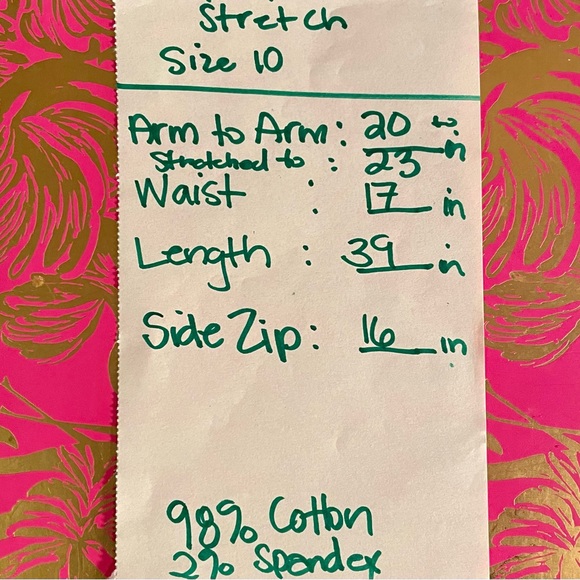 Stretch
Size 10
Arm to Arm: 20 to
Stretched to : 23 in
Waist : 17 in
Length : 39 in
Side Zip: 16 in
98% Cotton
2% Spandex